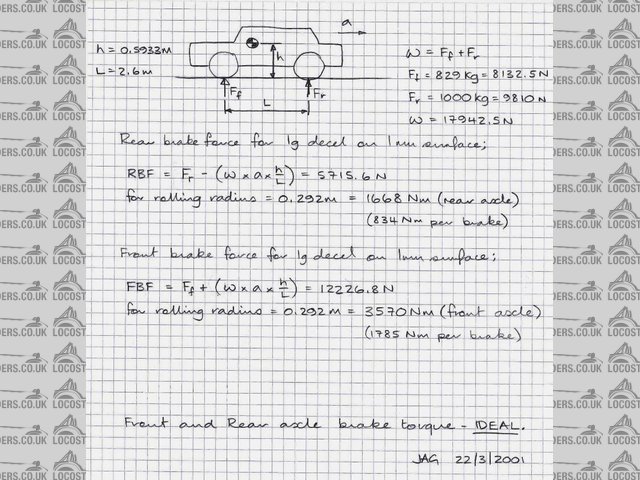 a
h = 0.5933m
L = 2.6m
h
Ff
Fr
L
W = Ff + Fr
Ff = 829 Kg = 8132.5N
Fr = 1000 Kg = 9810 N
W = 17942.5N
Rear brake force for 1g decel on 1mu surface;
RBF = Fr - (W × a × h/L) = 5715.6 N
for rolling radius = 0.292m = 1668 Nm (rear axle)
(834 Nm per brake)
Front brake force for 1g decel on 1mu surface;
FBF = Ff + (W × a × h/L) = 12226.8N
for rolling radius = 0.292m = 3570 Nm (front axle)
(1785 Nm per brake)
Front and Rear axle brake torque - IDEAL.
JAG 22/3/2001
DERS.CO.UK LOCOST